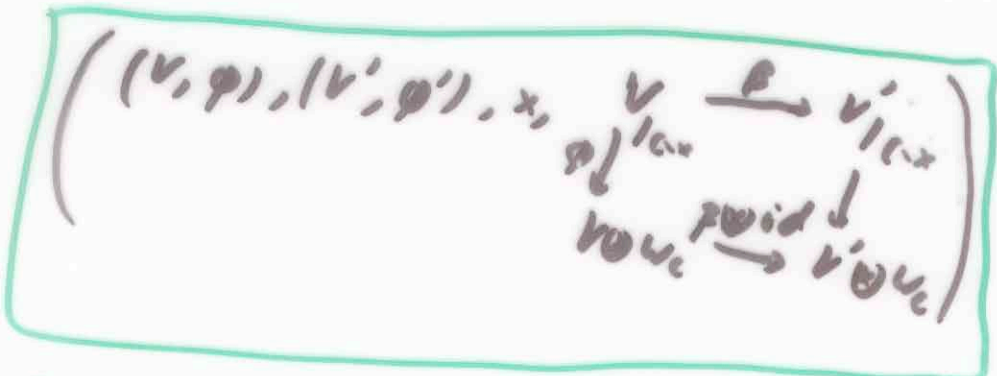 ( (V, φ), (V', φ'), x, V|_{C-x} →^{β} V'|_{C-x}
φ ↓ ↓
V⊗ω_C →^{β⊗id} V'⊗ω_C )